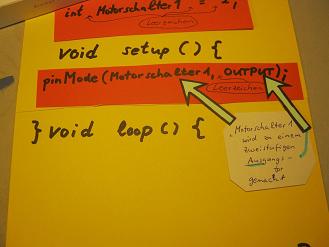 int Motorschalter1 = 1;
Leerzeichen
void setup() {
pinMode(Motorschalter1, OUTPUT);
Leerzeichen
} void loop() {
"Motorschalter1
wird zu einem
zweistufigen
Ausgangs-
tor
gemacht